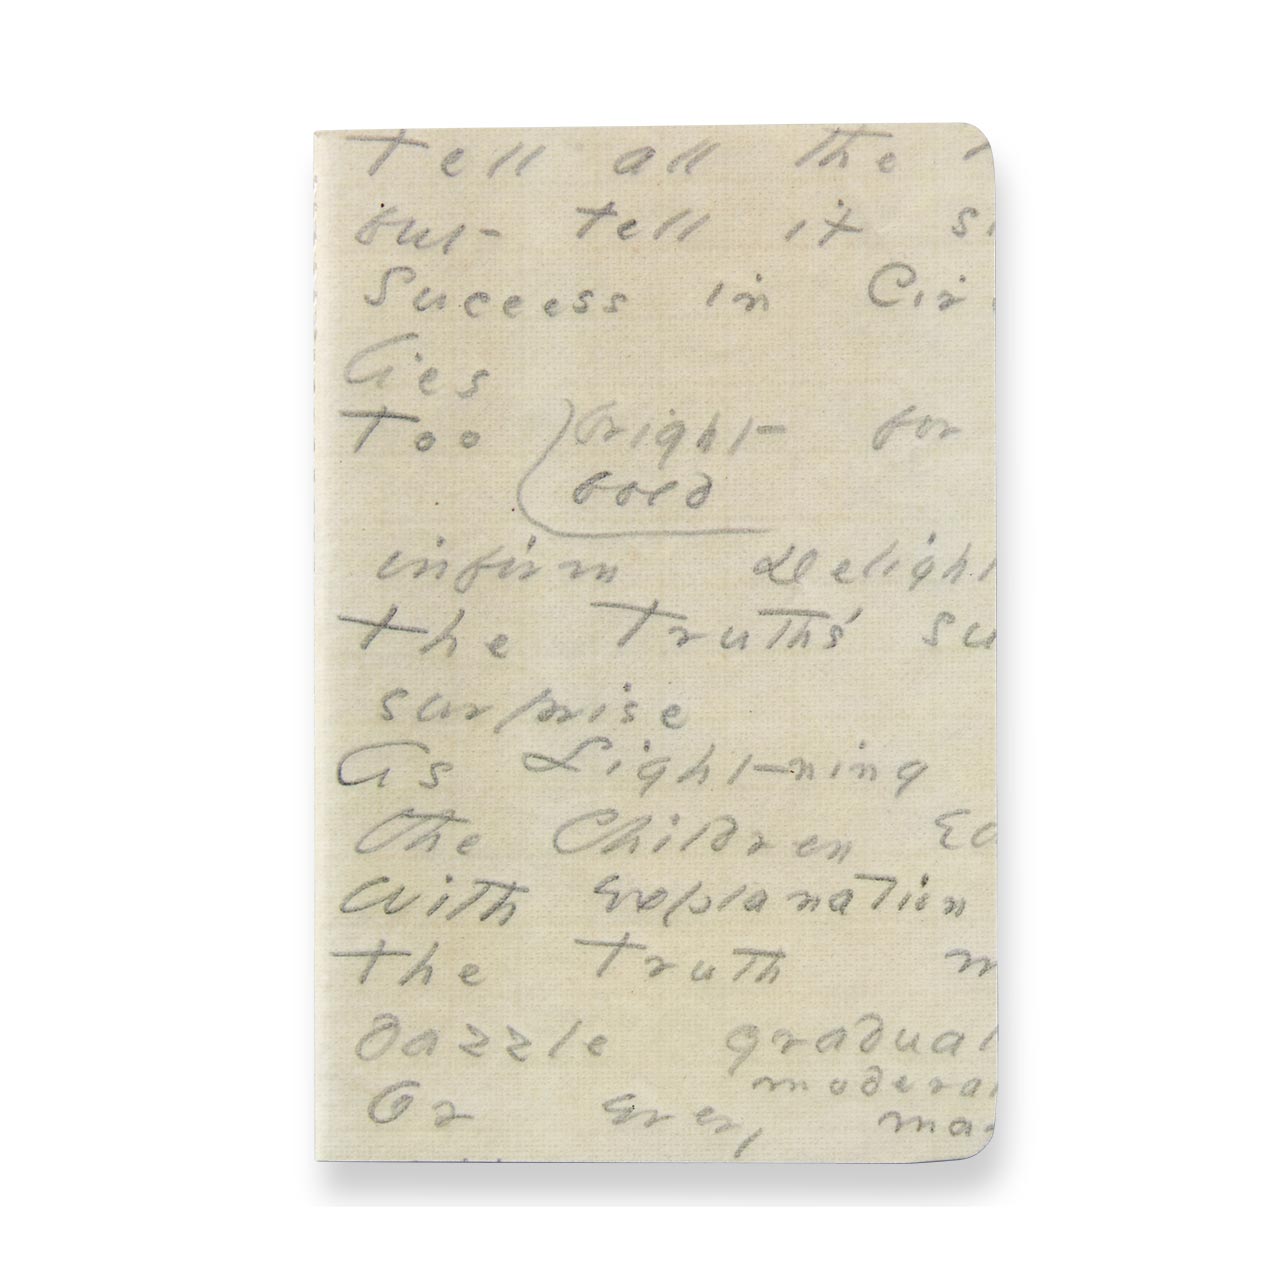 Tell all the
but - tell it
Success in Cir
lies
Too bright - for
bold
infirm Delight
the Truth's su
surprise
As Lightning
the Children Ea
With Explanation
the Truth m
dazzle gradual
moderat
Or every ma